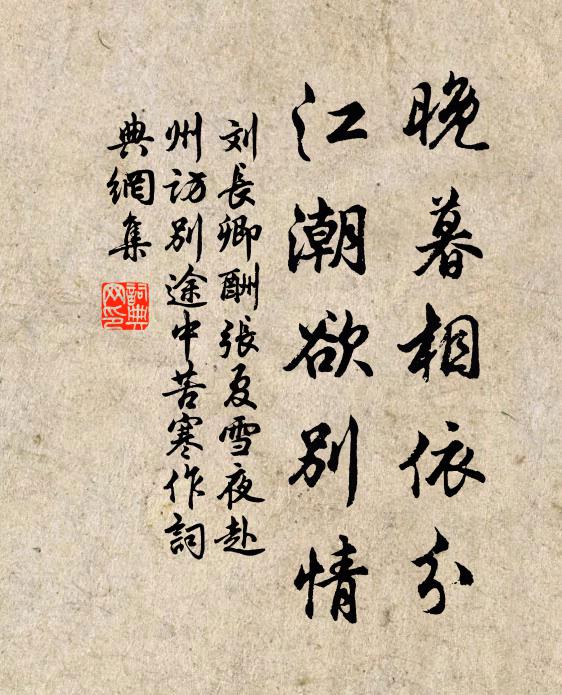 晚暮相依分
江潮欲别情
刘長卿酬張夏雪夜赴
州访别途中苦寒作詞
典網集
詞典网印